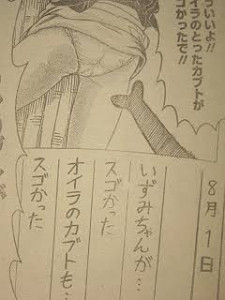 ういいよ!!
イラのとったカブトが
ゴかったで!!
8月1日
いずみちゃんが…
スゴかった
オイラのカブトも…
スゴかった